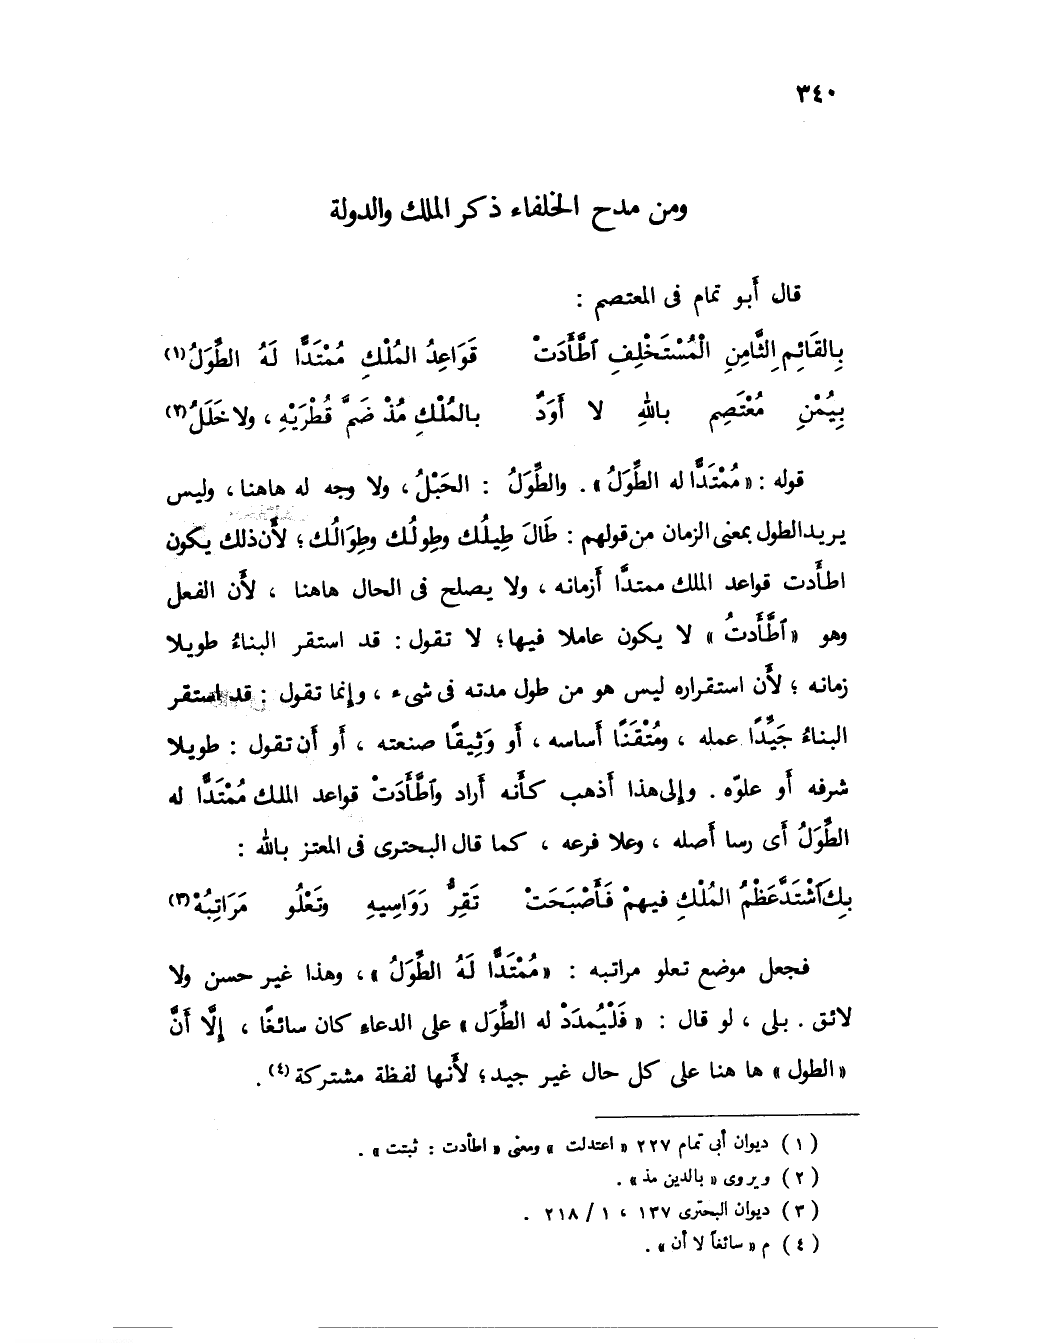 ٣٤٠
ومن مدح الخلفاء ذكر الملك والدولة
قال أَبو تمام فى المعتصم :
بِالقَائِمِ الثَّامِنِ الْمُسْتَخْلِفِ ٱطَّأَدَتْ قَوَاعِدُ المُلْكِ مُمْتَدًّا لَهُ الطِّوَلُ(١)
بِيُمْنِ مُعْتَصِمٍ بِاللهِ لا أَوَدٌ بالمُلْكِ مُذْ ضَمَّ قُطْرَيْهِ ، ولا خَلَلُ(٢)
قوله : « مُمْتَدًّا له الطِّوَلُ » . والطِّوَلُ : الحَبْلُ ، ولا وجه له هاهنا ، وليس
يريد الطول بمعنى الزمان من قولهم : طَالَ طِيلُك وطِولُك وطِوَالُك ؛ لأَن ذلك يكون
اطأَدت قواعد الملك ممتدًّا أَزمانه ، ولا يصلح فى الحال هاهنا ، لأَن الفعل
وهو « ٱطَّأَدتُ » لا يكون عاملا فيها ؛ لا تقول : قد استقر البناءُ طويلا
زمانه ؛ لأَن استقراره ليس هو من طول مدته فى شىء ، وإنما تقول : قد استقر
البناءُ جَيِّدًا عمله ، ومُتْقَنًا أساسه ، أَو وَثِيقًا صنعته ، أَو أَن تقول : طويلا
شرفه أَو علوّه . وإلى هذا أَذهب كأَنه أَراد وٱطَّأَدَتْ قواعد الملك مُمْتَدًّا له
الطِّوَلُ أَى رسا أَصله ، وعلا فرعه ، كما قال البحترى فى المعتز بالله :
بِكَ ٱشْتَدَّ عَظْمُ المُلْكِ فيهمْ فَأَصْبَحَتْ تَقِرُّ رَوَاسِيهِ وتَعْلُو مَرَاتِبُهْ(٣)
فجعل موضع تعلو مراتبه : « مُمْتَدًّا لَهُ الطِّوَلُ » ، وهذا غير حسن ولا
لائق . بلى ، لو قال : « فَلْيُمدَدْ له الطِّوَل » على الدعاء كان سائغًا ، إِلَّا أَنَّ
« الطول » ها هنا على كل حال غير جيد ؛ لأَنها لفظة مشتركة(٤) .
( ١ ) ديوان أبى تمام ٢٢٧ « اعتدلت » ومعنى « اطأدت : ثبتت » .
( ٢ ) ويروى « بالدين مذ » .
( ٣ ) ديوان البحترى ١٣٧ ، ١ / ٢١٨ .
( ٤ ) م « سائغاً لا أن » .